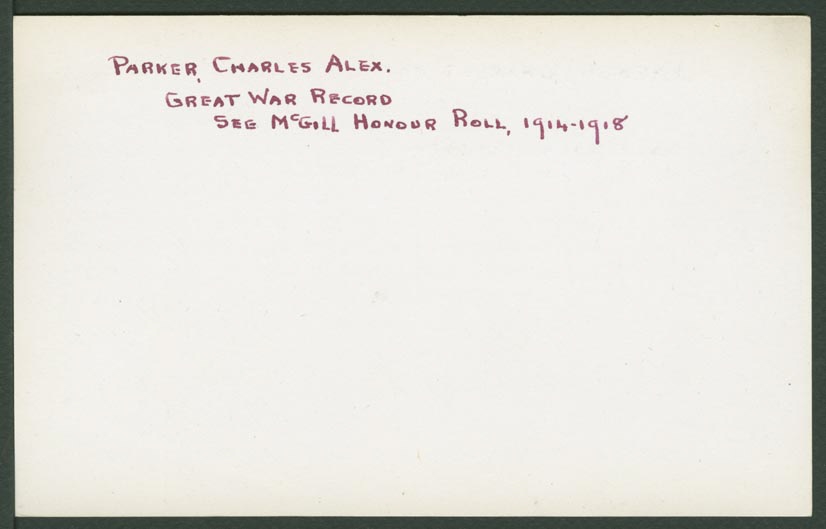 PARKER, CHARLES ALEX.
GREAT WAR RECORD
SEE McGILL HONOUR ROLL, 1914-1918